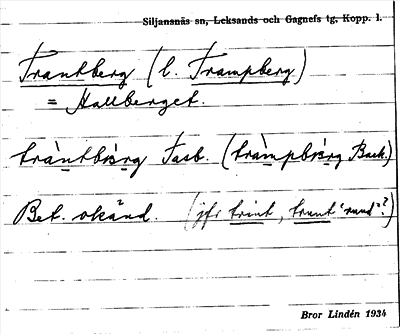 Siljansnäs sn, Leksands och Gagnefs tg, Kopp. l.
Trantberg (l. Trampberg)
= Hallberget.
tràntbä̀rg Fasb. (tràmpbä̀rg Back.)
Bet. okänd. (jfr trint, trunt 'rund'?)
Bror Lindén 1934